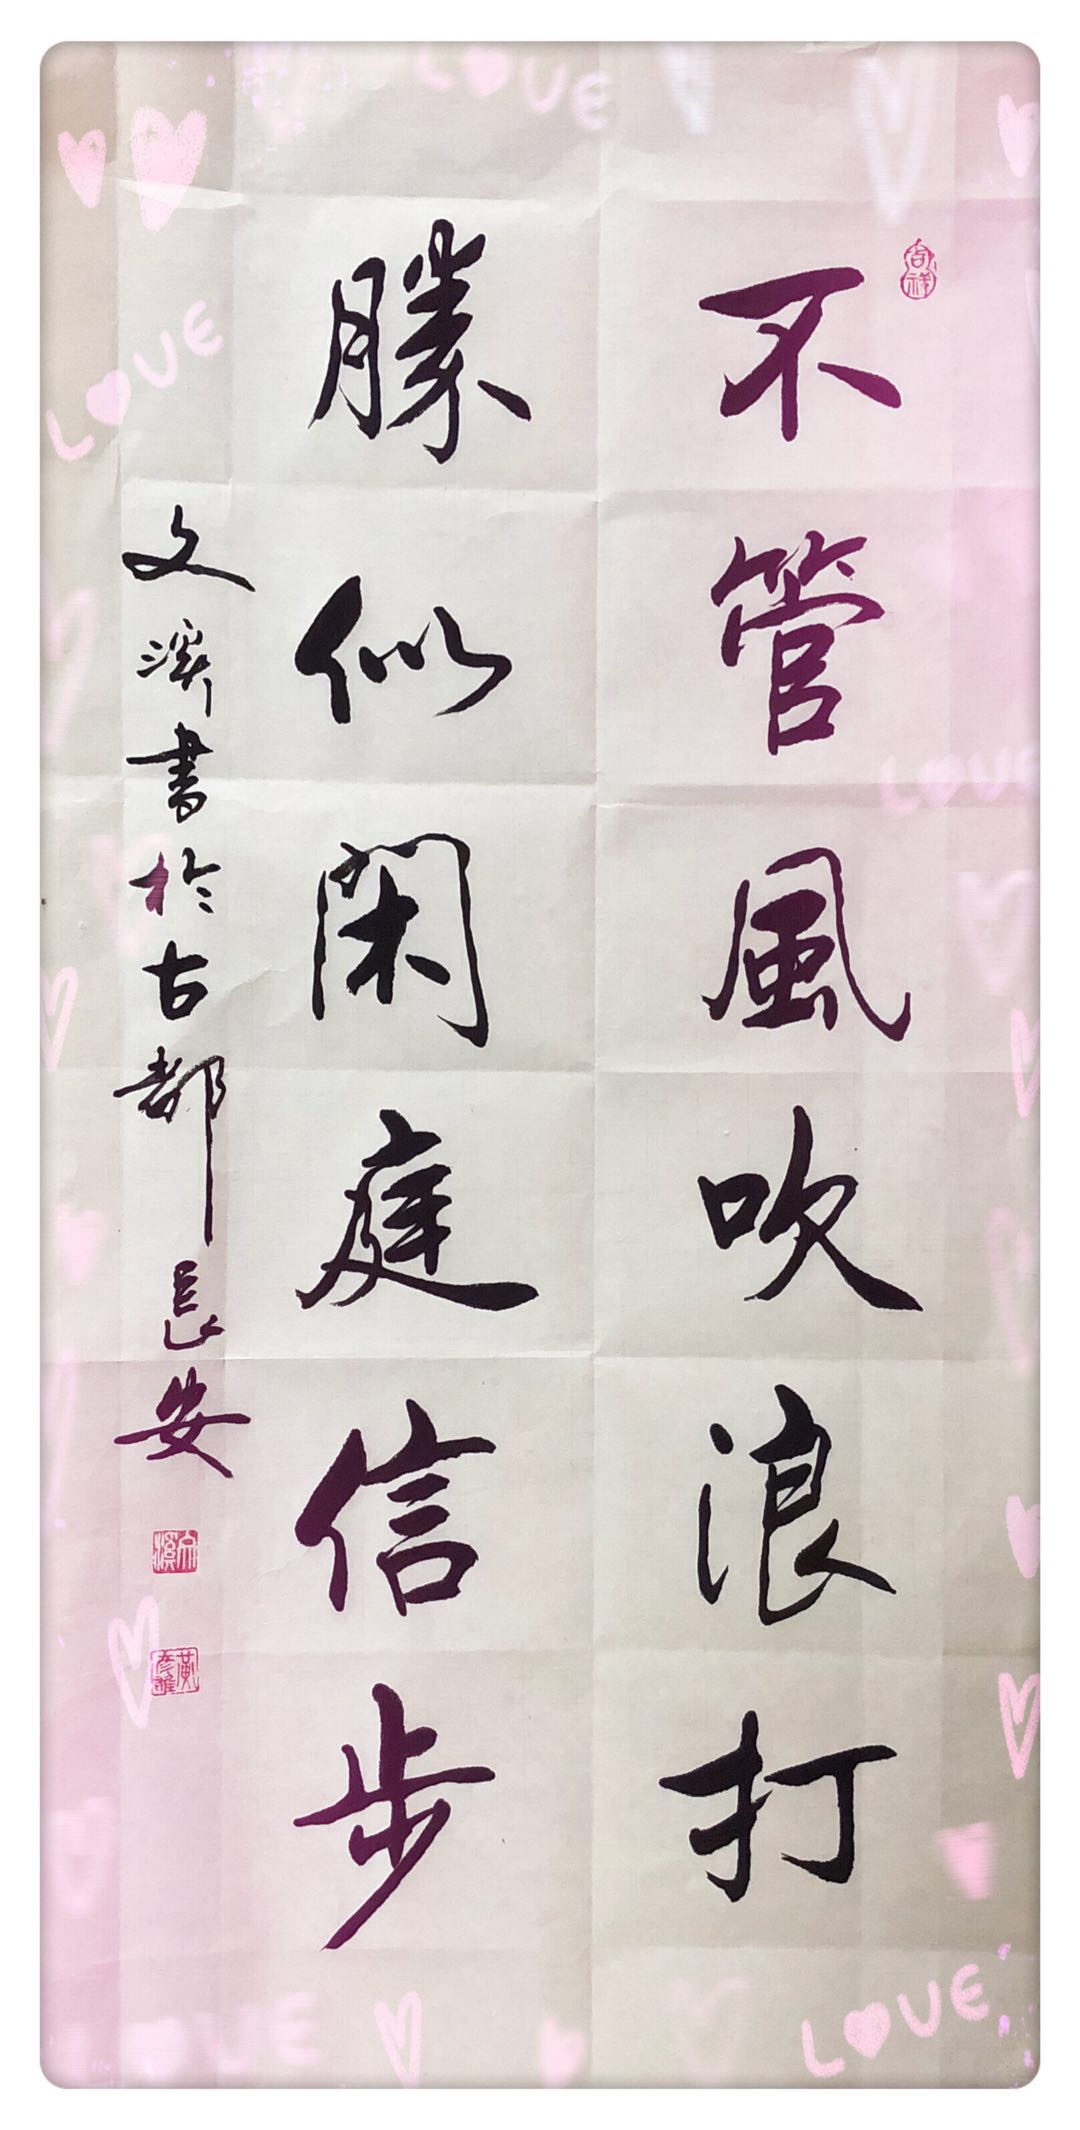 LOVE
吉祥
不管風吹浪打
勝似閑庭信步
文溪書於古都長安
文溪
LOVE
LOVE
LOVE
LOVE